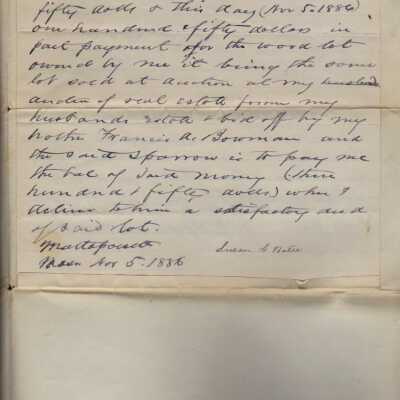 fifty dolls & this day (Nov 5. 1886)
one hundred & fifty dollars in
part payment for the wood lot
owned by me it being the same
lot sold at auction at my husband
auction of real estate from my
husbands Estate & bid off by my
brother Francis A. Bowman and
the said Sparrow is to pay me
the bal of said money (three
hundred & fifty dolls) when I
deliver to him a satisfactory deed
of said lot.
Mattapoisett
Mass Nov 5. 1886
Susan C